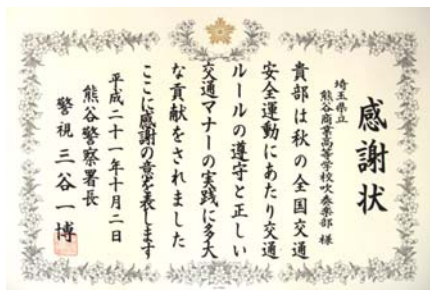 感謝状
埼玉県立
熊谷商業高等学校吹奏楽部 様
貴部は秋の全国交通
安全運動にあたり交通
ルールの遵守と正しい
交通マナーの実践に多大
な貢献をされました
ここに感謝の意を表します
平成二十一年十月二日
熊谷警察署長
警視 三谷一博